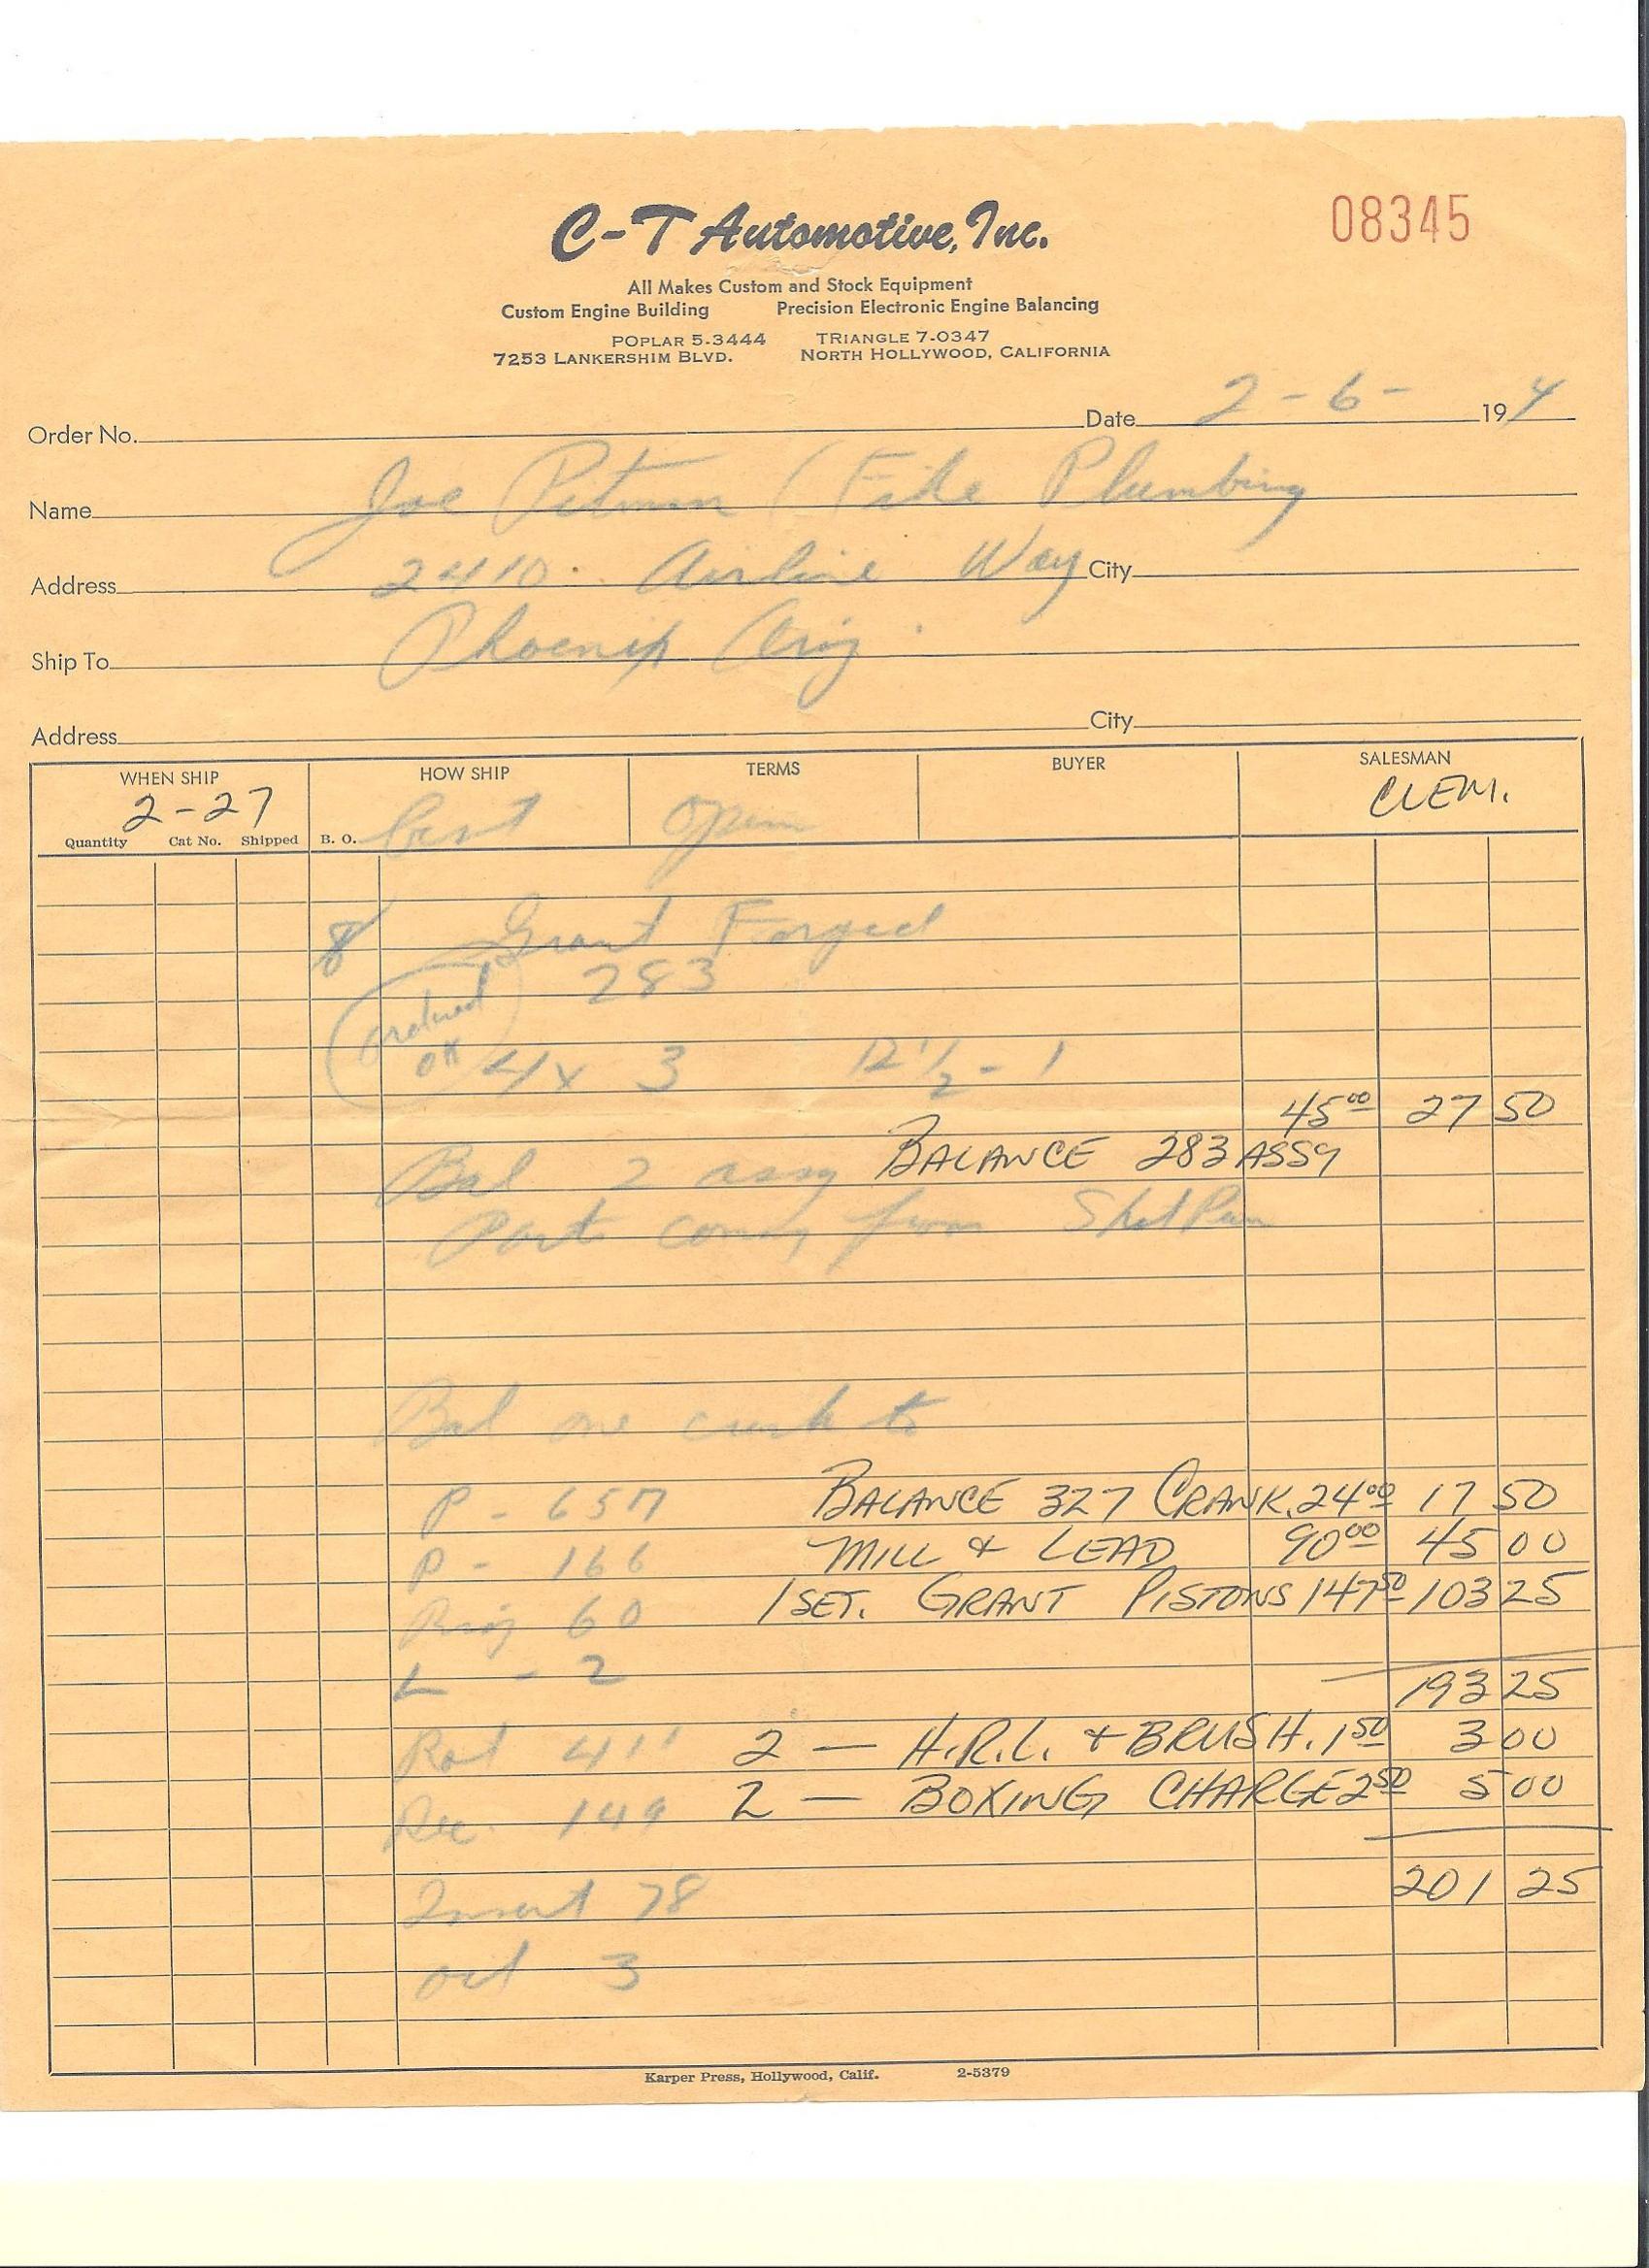 08345
C-T Automotive, Inc.
All Makes Custom and Stock Equipment
Custom Engine Building Precision Electronic Engine Balancing
POPLAR 5-3444 TRIANGLE 7-0347
7253 LANKERSHIM BLVD. NORTH HOLLYWOOD, CALIFORNIA
Order No. Date 2-6- 194
Name Joe Pitman / Fike Plumbing
Address 2410 Airline Way City
Ship To Phoenix Ariz.
Address City
WHEN SHIP HOW SHIP TERMS BUYER SALESMAN
2-27 best open CLEM.
Quantity Cat No. Shipped B. O.
8 Grant Forged
283
ordered
OK 4 x 3 12 1/2 - 1
45 00 27 50
Bal 2 assy BALANCE 283 ASSY
parts coming from
Bal one crank to
P - 657 BALANCE 327 CRANK. 24 00 17 50
P - 166 MILL & LEAD 90 00 45 00
Ring 60 1 SET. GRANT PISTONS 147 50 103 25
L - 2
193 25
Rod 411 2 — H.R.L. & BRUSH. 1 50 3 00
Rec. 149 2 — BOXING CHARGE 2 50 5 00
201 25
Insert 78
oil 3
Karper Press, Hollywood, Calif. 2-5379